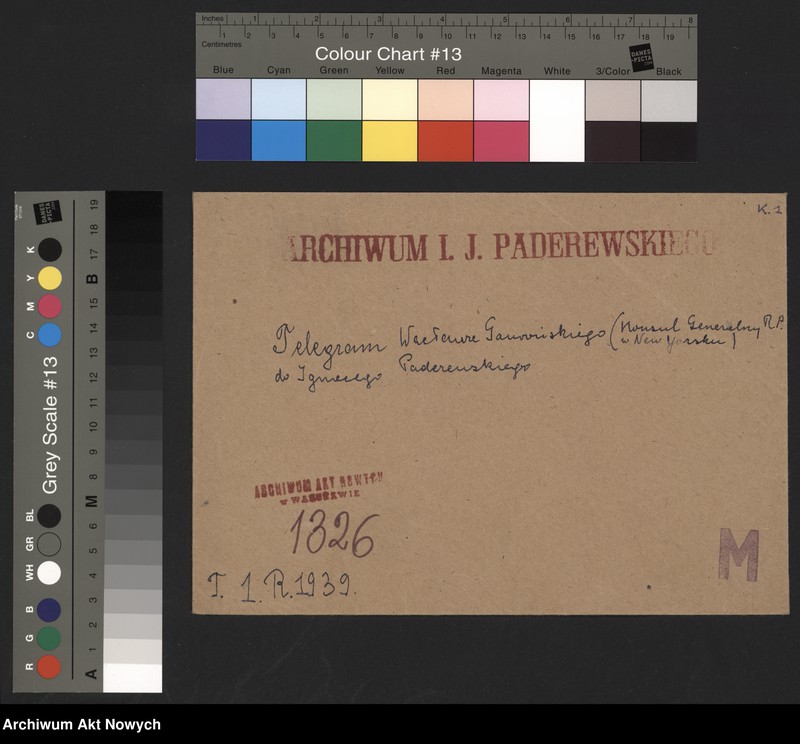 Inches 1 2 3 4 5 6 7 8
1 2 3 4 5 6 7 8 9 10 11 12 13 14 15 16 17 18 19
Centimetres
Colour Chart #13
DANES
-PICTA
.COM
Blue Cyan Green Yellow Red Magenta White 3/Color Black
Grey Scale #13
R G B WH GR BL C M Y K
A 1 2 3 4 5 6 M 8 9 10 11 12 13 14 15 B 17 18 19
K. 1
ARCHIWUM I. J. PADEREWSKIEGO
Telegram Wacława (Konsul Generalny R.P.
w New Yorsku)
do Ignacego Paderewskiego
ARCHIWUM AKT NOWYCH
W WARSZAWIE
1326
T. 1. R. 1939.
M
Archiwum Akt Nowych